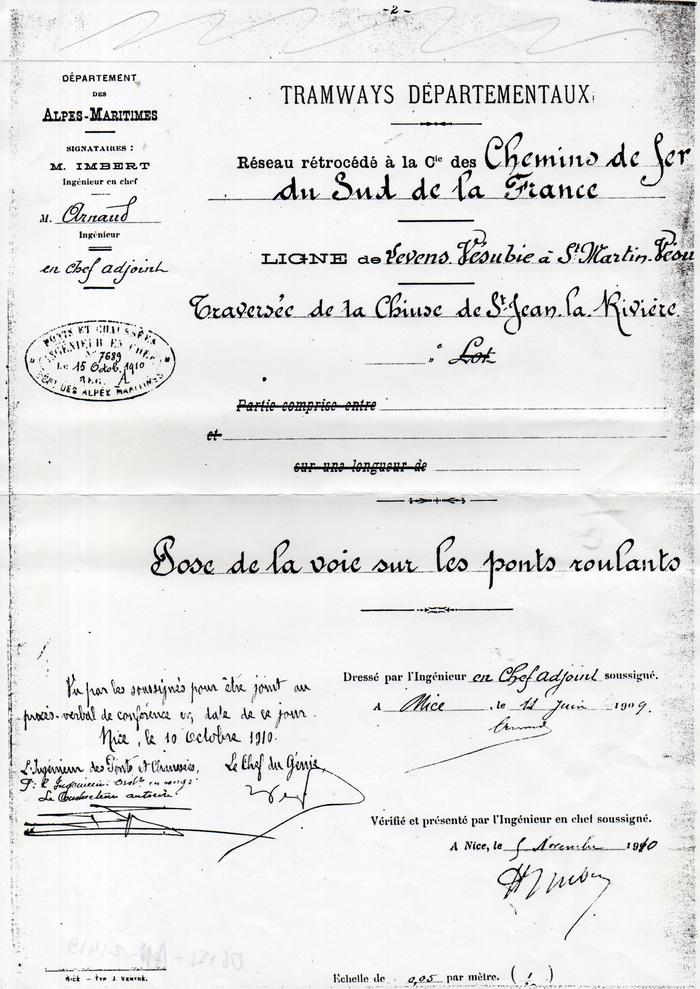 - 2 -
DÉPARTEMENT
DES
ALPES-MARITIMES
SIGNATAIRES :
M. IMBERT
Ingénieur en chef
M. Arnaud
Ingénieur
en chef adjoint
PONTS ET CHAUSSÉES
INGÉNIEUR EN CHEF
No 7689
Le 15 Octob. 1910
REG. A
DÉPT DES ALPES MARITIMES
TRAMWAYS DÉPARTEMENTAUX
Réseau rétrocédé à la Cie des Chemins de Fer
du Sud de la France
LIGNE de Levens-Vésubie à St Martin-Vésu
Traversée de la Chiuse de St Jean-la-Rivière
" Lot
Partie comprise entre
et
sur une longueur de
Pose de la voie sur les ponts roulants
Vu par les soussignés pour être joint au
procès-verbal de conférence en date de ce jour.
Nice, le 10 Octobre 1910.
L'Ingénieur des Ponts et Chaussées, Le Chef du Génie,
Le Conducteur autorisé
Dressé par l'Ingénieur en Chef adjoint soussigné.
A Nice, le Juin 1909.
Arnaud
Vérifié et présenté par l'Ingénieur en chef soussigné.
A Nice, le 5 Novembre 1910
NICE - TYP J. VENTRE.
Echelle de 0,05 par mètre.